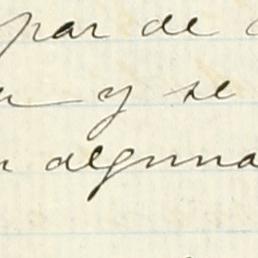 par de
y se
alguna